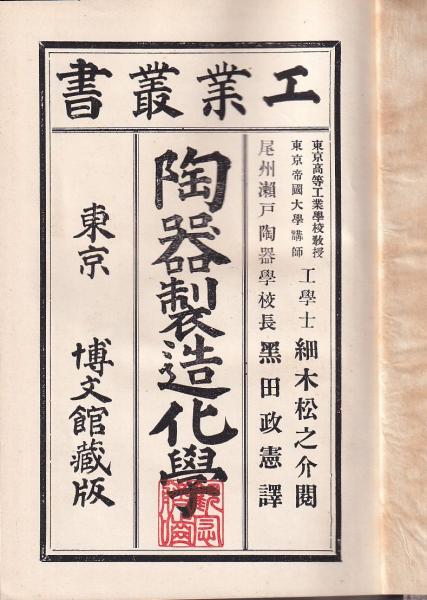 工業叢書
東京高等工業學校敎授
東京帝國大學講師
工學士 細木松之介閱
尾州瀨戶陶器學校長 黑田政憲譯
陶器製造化學
東京 博文館藏版